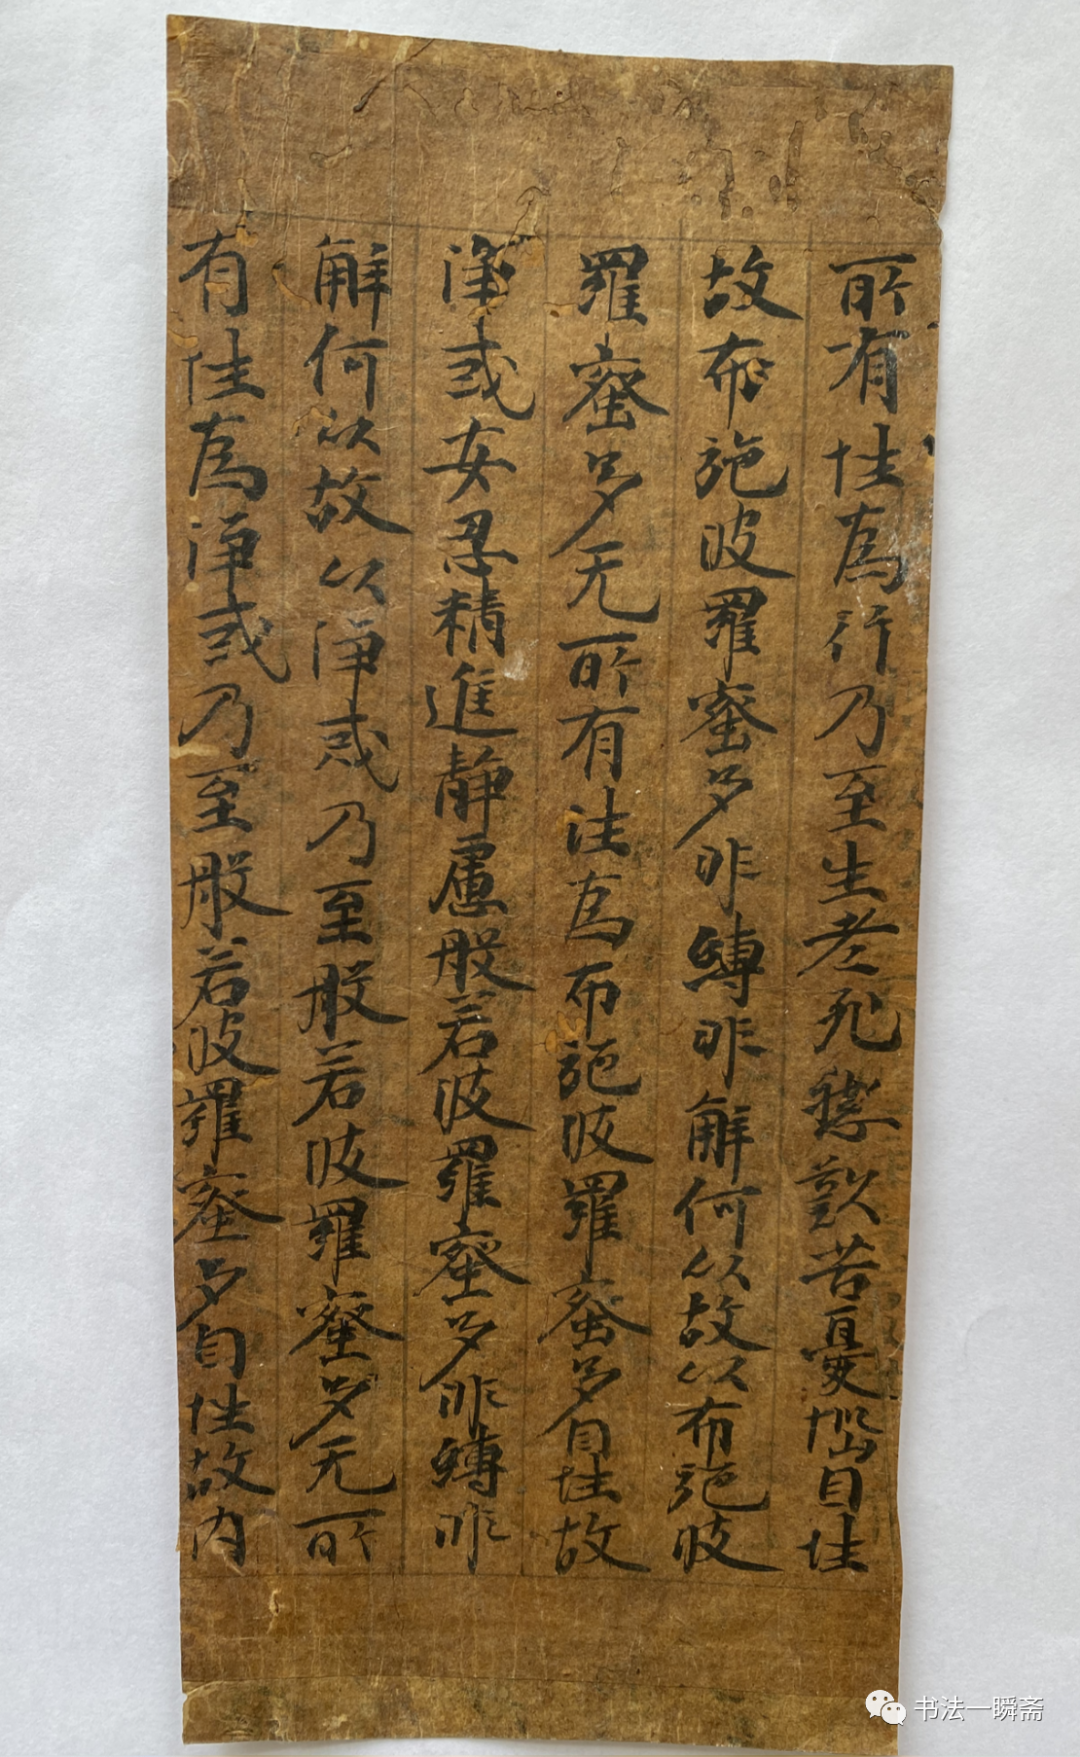 所有性為行乃至生老死愁歎苦憂惱自性
故布施波羅蜜多非縛非解何以故以布施波
羅蜜多无所有性為布施波羅蜜多自性故
淨戒安忍精進靜慮般若波羅蜜多非縛非
解何以故以淨戒乃至般若波羅蜜多无所
有性為淨戒乃至般若波羅蜜多自性故內
书法一瞬斋